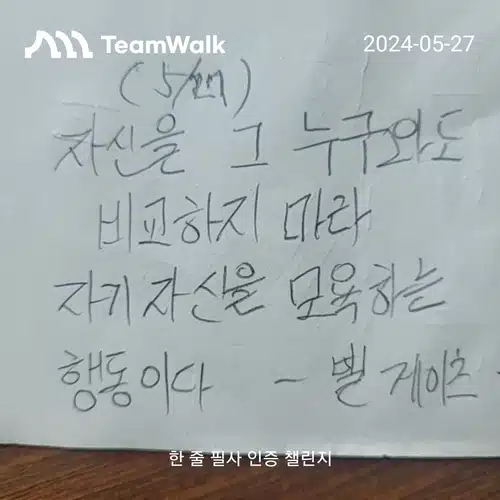 TeamWalk 2024-05-27
(5/27)
자신을 그 누구와도
비교하지 마라
자키 자신을 모욕하는
행동이다 - 빌 게이츠 -
한 줄 필사 인증 챌린지